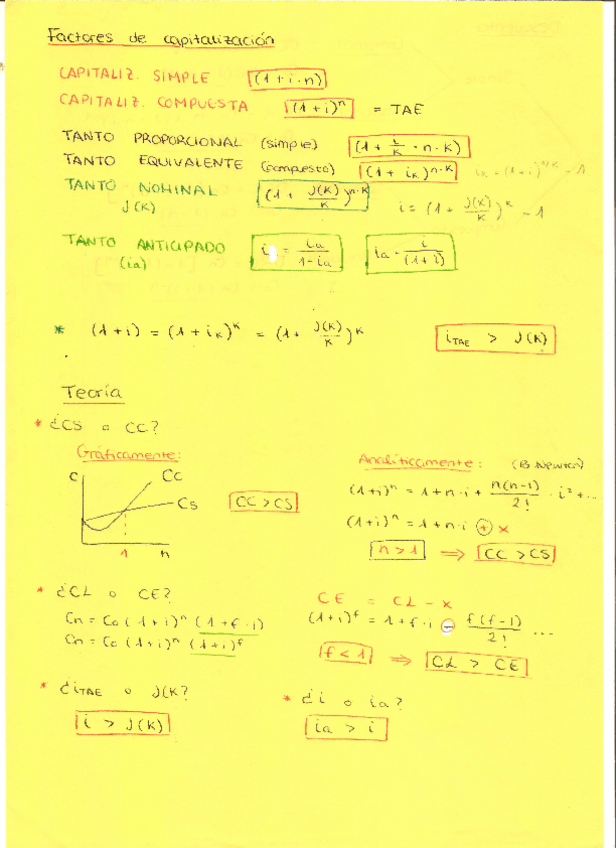 Factores de capitalización
CAPITALIZ. SIMPLE (1+i·n)
CAPITALIZ. COMPUESTA (1+i)^n = TAE
TANTO PROPORCIONAL (simple) (1 + i/k · n·k)
TANTO EQUIVALENTE (compuesto) (1 + i_k)^n·k i_k = (1+i)^1/k - 1
TANTO NOMINAL (1 + J(K)/K)^n·k
J(K) i = (1 + J(K)/K)^k - 1
TANTO ANTICIPADO i = ia/1-ia ia = i/(1+i)
(ia)
* (1+i) = (1+i_k)^k = (1+ J(K)/K)^k i_TAE > J(K)
Teoría
* ¿CS o CC?
Gráficamente:
C CC
CS
1 n
CC > CS
Analíticamente: (B. Newton)
(1+i)^n = 1+n·i + n(n-1)/2! · i² + ...
(1+i)^n = 1+n·i + x
n > 1 ⇒ CC > CS
* ¿CL o CE?
Cn = Co (1+i)^n (1+f·i)
Cn = Co (1+i)^n (1+i)^f
CE = CL - x
(1+i)^f = 1+f·i - f(f-1)/2! ...
f < 1 ⇒ CL > CE
* ¿i_TAE o J(K)?
i > J(K)
* ¿i o ia?
ia > i